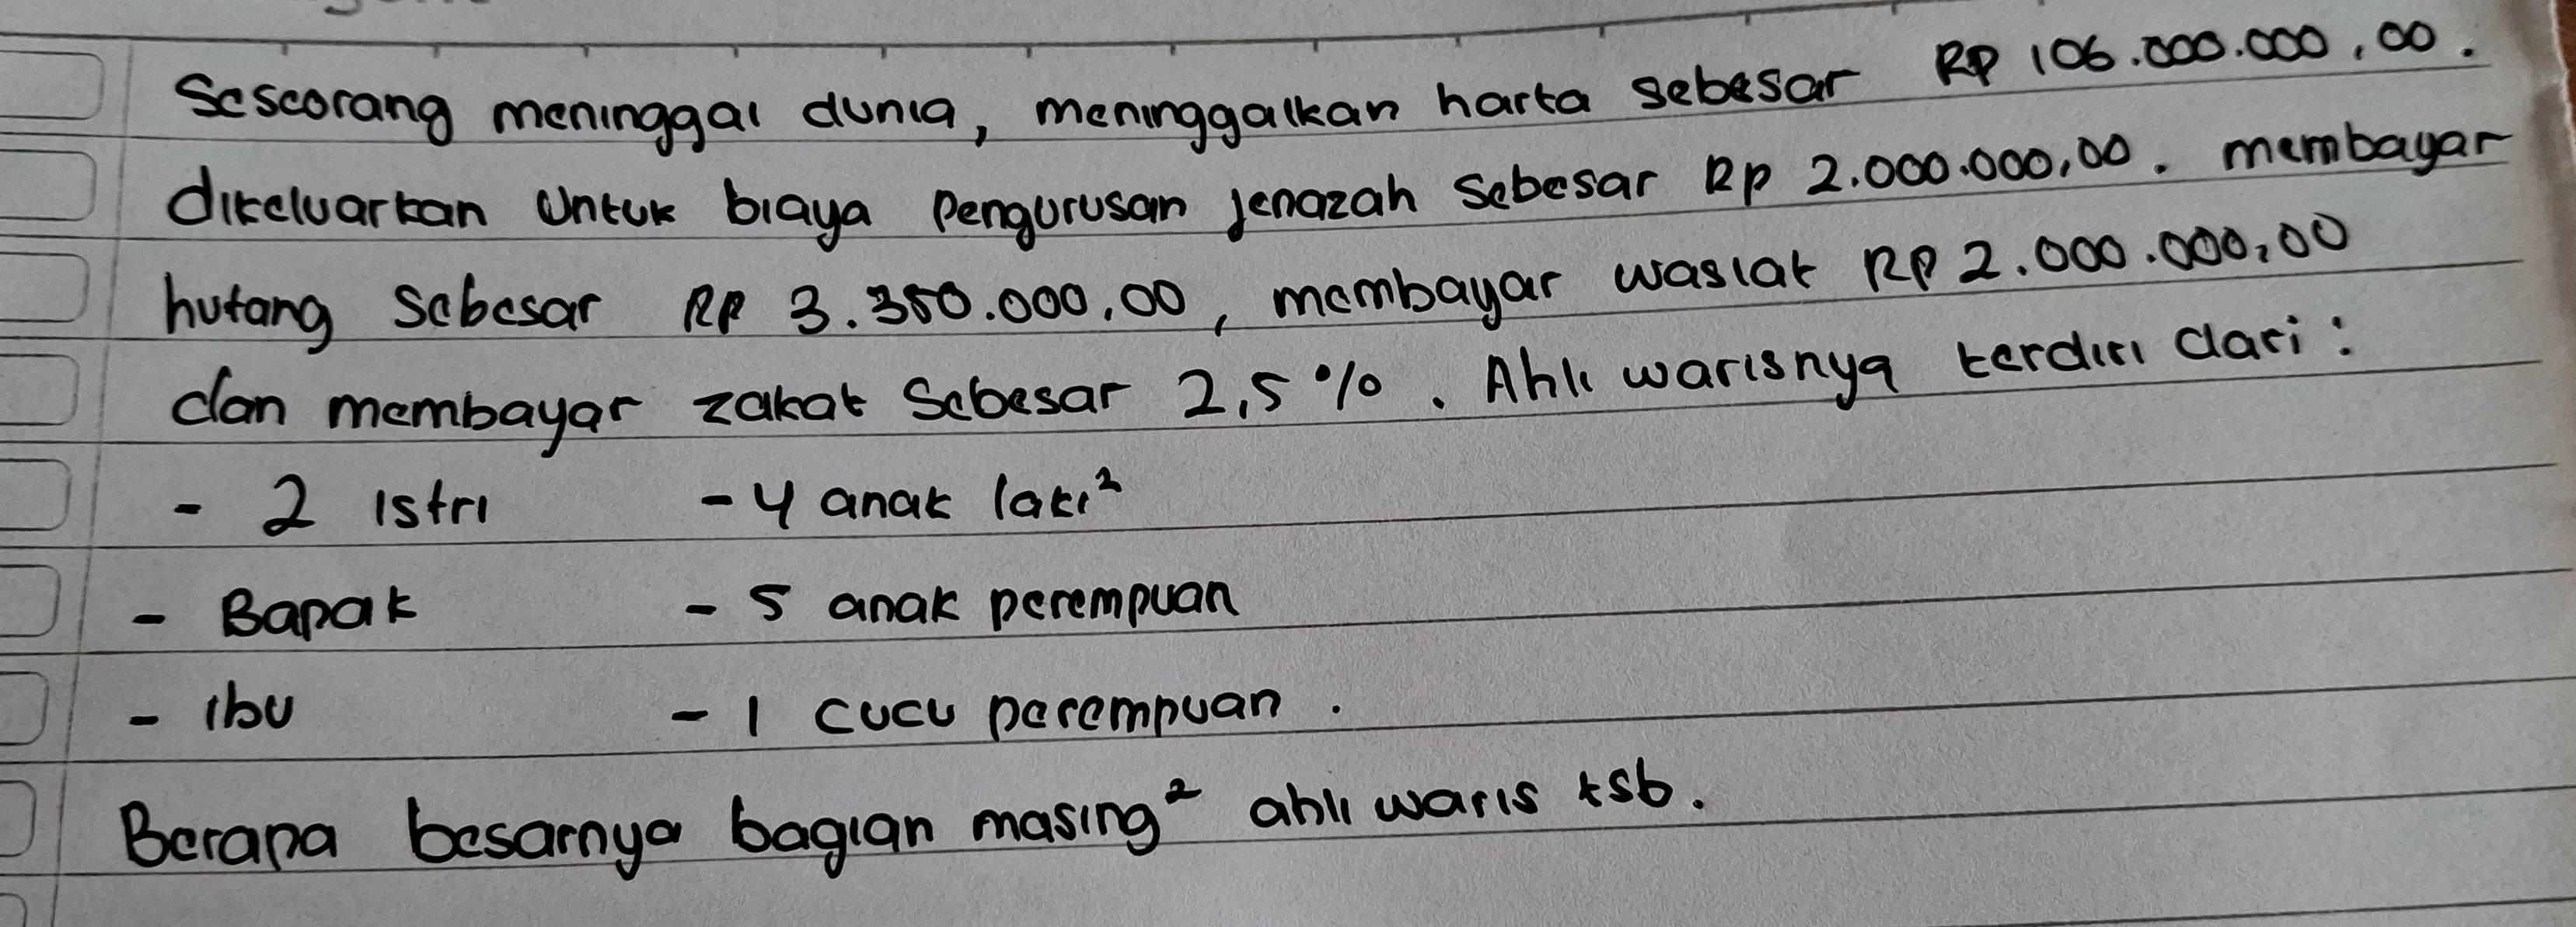 Seseorang meninggal dunia, meninggalkan harta sebesar RP 106.000.000,00.
dikeluarkan untuk biaya pengurusan jenazah sebesar Rp 2.000.000,00. membayar
hutang sebesar RP 3.350.000,00, membayar wasiat RP 2.000.000,00
dan membayar zakat sebesar 2,5%. Ahli warisnya terdiri dari:
- 2 istri - 4 anak laki²
- Bapak - 5 anak perempuan
- ibu - 1 cucu perempuan.
Berapa besarnya bagian masing² ahli waris tsb.